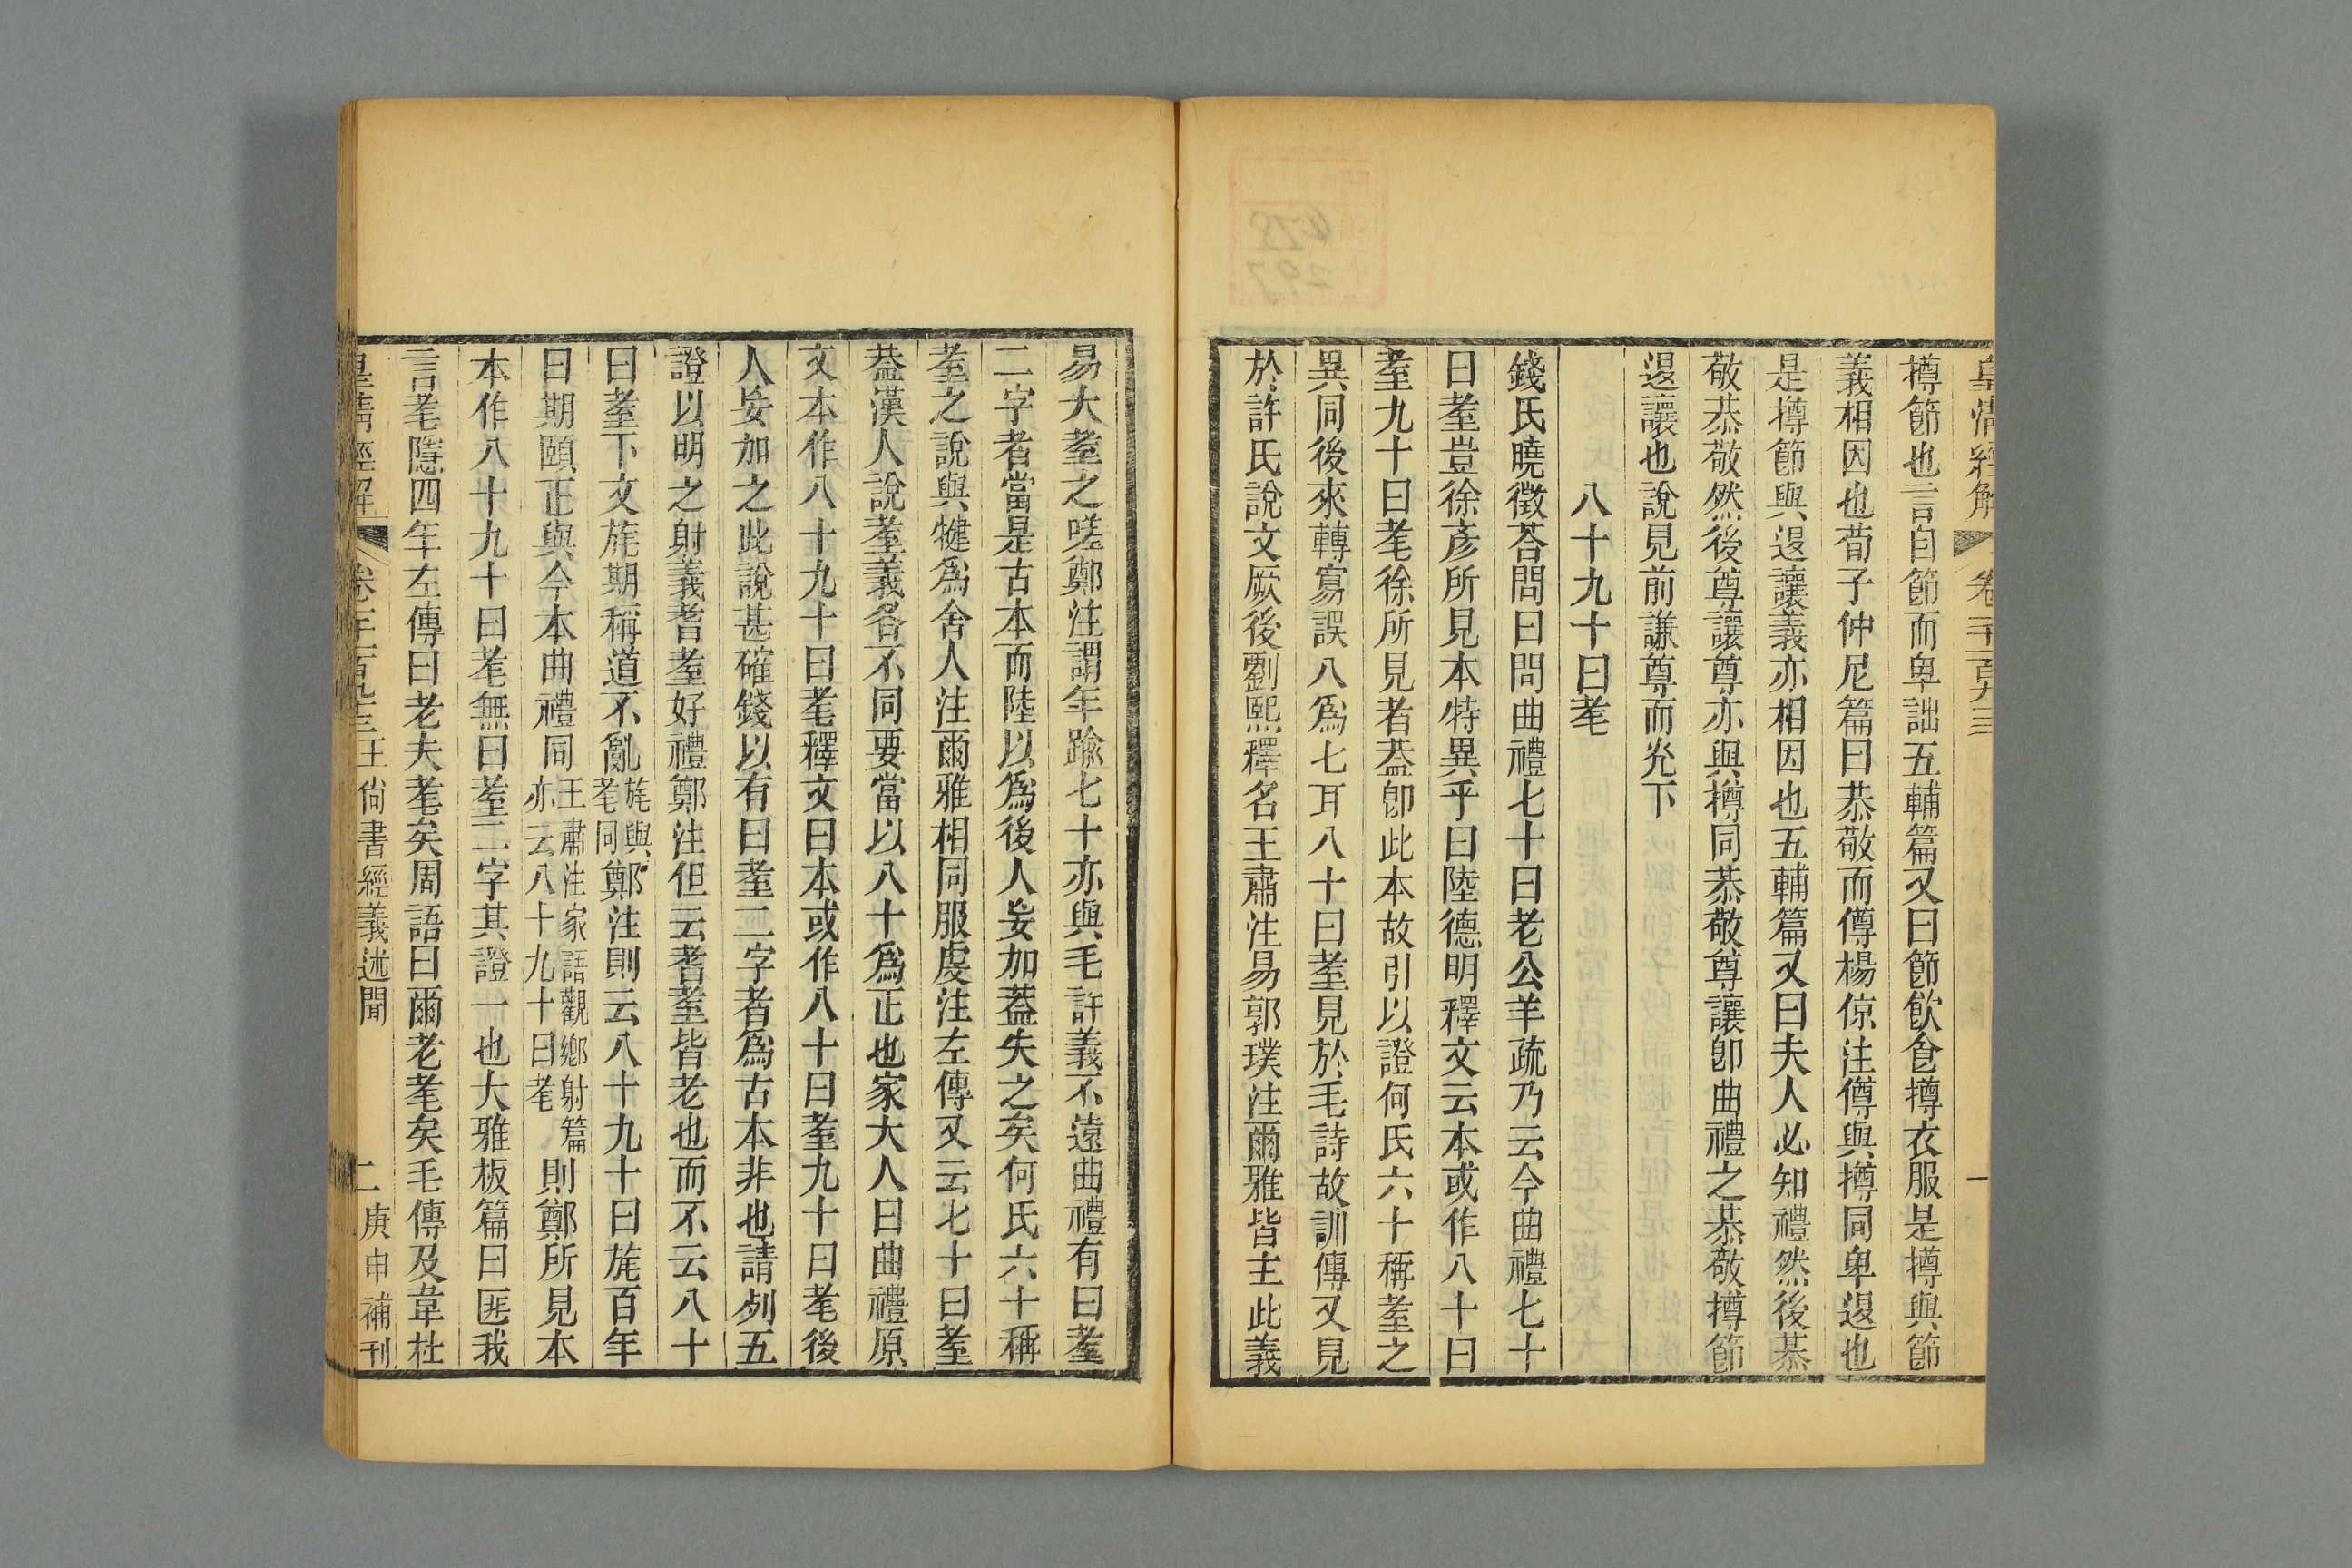 皇清經解 卷一千一百九十三 一
撙節也言自節而卑詘五輔篇又曰節飲食撙衣服是撙與節
義相因也荀子仲尼篇曰恭敬而僔楊倞注僔與撙同卑退也
是撙節與退讓義亦相因也五輔篇又曰夫人必知禮然後恭
敬恭敬然後尊讓尊亦與撙同恭敬尊讓卽曲禮之恭敬撙節
退讓也說見前謙尊而光下
八十九十曰耄
錢氏曉徵荅問曰問曲禮七十曰老公羊疏乃云今曲禮七十
曰耋豈徐彥所見本特異乎曰陸德明釋文云本或作八十曰
耋九十曰耄徐所見者葢卽此本故引以證何氏六十稱耋之
異同後來轉寫誤八爲七耳八十曰耋見於毛詩故訓傳又見
於許氏說文厥後劉熙釋名王肅注易郭璞注爾雅皆主此義
易大耋之嗟鄭注謂年踰七十亦與毛許義不遠曲禮有曰耋
二字者當是古本而陸以爲後人妄加葢失之矣何氏六十稱
耋之說與犍爲舍人注爾雅相同服虔注左傳又云七十曰耋
葢漢人說耋義各不同要當以八十爲正也家大人曰曲禮原
文本作八十九十曰耄釋文曰本或作八十曰耋九十曰耄後
人妄加之此說甚確錢以有曰耋二字者爲古本非也請列五
證以明之射義耆耋好禮鄭注但云耆耋皆老也而不云八十
曰耋下文旄期稱道不亂旄與耄同鄭注則云八十九十曰旄百年
曰期頤正與今本曲禮同王肅注家語觀鄉射篇亦云八十九十曰耄則鄭所見本
本作八十九十曰耄無曰耋二字其證一也大雅板篇曰匪我
言耄隱四年左傳曰老夫耄矣周語曰爾老耄矣毛傳及韋杜
皇清經解 卷一千一百九十三 王尙書經義述聞 二 庚申補刊